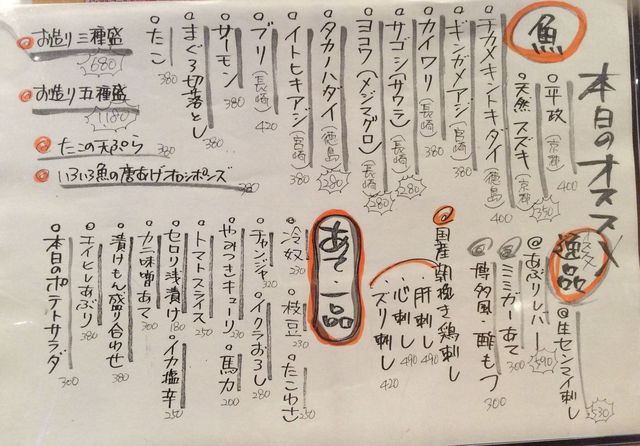 本日のオススメ
魚
平政 (京都) 400
天然スズキ (京都) 350
チカメキントキダイ (徳島) 400
ギンガメアジ (宮崎) 380
カイワリ (長崎) 280
サゴシ(サワラ) (長崎) 280
ヨコワ(メジマグロ) (長崎) 380
タカノハダイ (徳島) 280
イトヒキアジ (宮崎) 380
ブリ (長崎) 420
サーモン 380
まぐろ切落とし 380
たこ 380
お造り三種盛 680
お造り五種盛 1180
たこの天ぷら
いろいろ魚の唐あげオロシポンズ 380
逸品
生センマイ刺し 530
あぶりレバー 590
ミミガーあて 300
博多風・酢もつ 300
国産朝挽き鶏刺し
肝刺し 490
心刺し 490
ズリ刺し 420
あて一品
冷奴 230
枝豆 230
たこわさ 250
チャンジャ 320
イクラおろし 280
やみつきキューリ 230
馬力 200
トマトスライス 250
セロリ浅漬け 180
イカ塩辛 250
カニ味噌あて 300
漬けもん盛り合わせ 380
エイヒレあぶり 380
本日のポテトサラダ 300